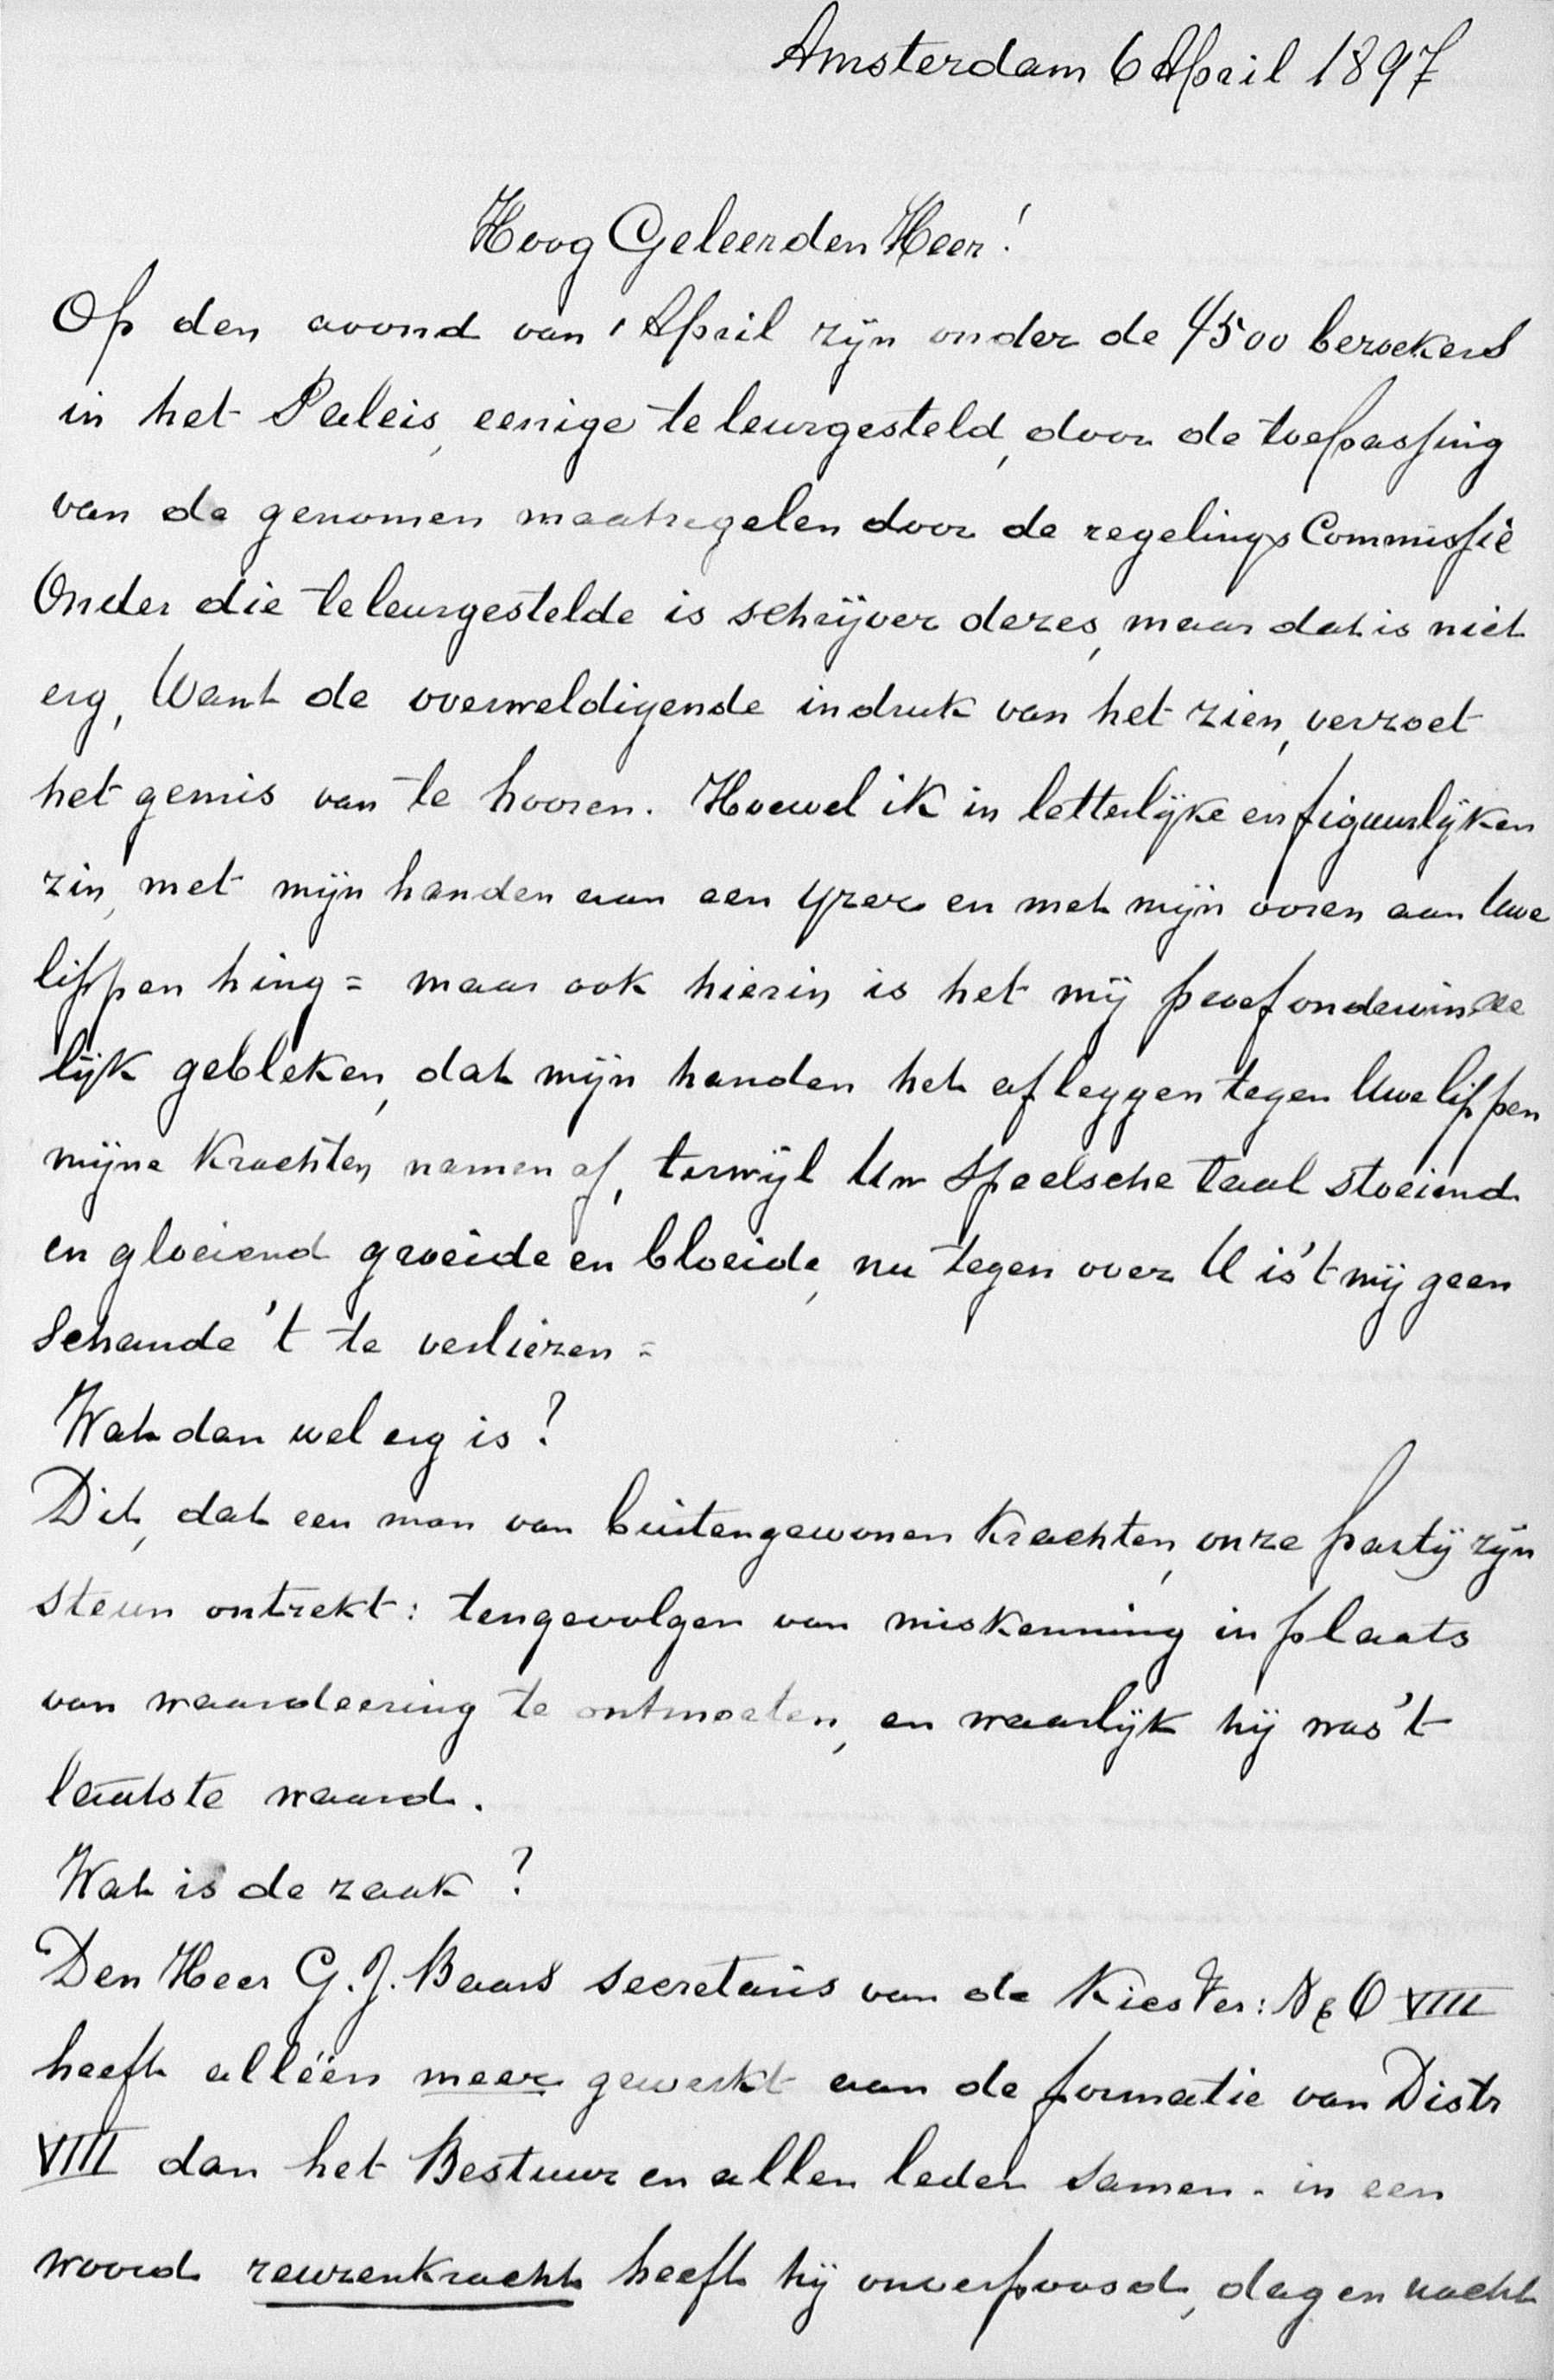 Amsterdam 6 April 1897
Hoog Geleerden Heer!
Op den avond van 1 April zijn onder de 4500 bezoekers
in het Paleis, eenige te leurgesteld, door de toepassing
van de genomen maatregelen door de regelings Commissie
Onder die teleurgestelde is schrijver dezes, maar dat is niet
erg, Want de overweldigende indruk van het zien, verzoet
het gemis van te hooren. Hoewel ik in letterlijke en figuurlijken
zin, met mijn handen aan een yzer en met mijn ooren aan Uwe
lippen hing = maar ook hierin is het mij proefondervinde
lijk gebleken, dat mijn handen het afleggen tegen Uwe lippen
mijne krachten namen af, terwijl Uw Speelsche taal stoeiend
en gloeiend groeide en bloeide, nu tegen over U is 't mij geen
Schande 't te verliezen =
Wat dan wel erg is?
Dit, dat een man van buitengewonen krachten, onze partij zijn
steun ontrekt: tengevolgen van miskenning in plaats
van waardeering te ontmoeten, en waarlijk hij was 't
laatste waard.
Wat is de zaak?
Den Heer G. J. Baars secretaris van de Kies Ver: N & O VIII
heeft alléén meer gewerkt aan de formatie van Distr
VIII dan het Bestuur en allen leden samen - in een
woord reuzenkracht heeft hij onverpoosd, dag en nacht